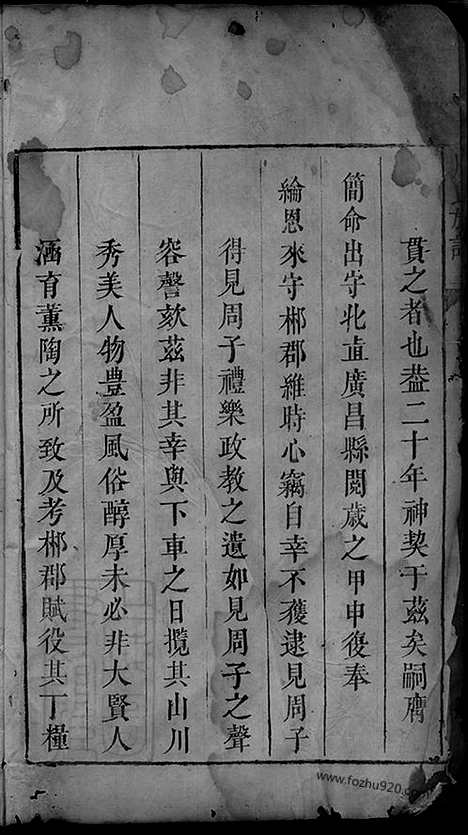 貫之者也葢二十年神契于茲矣嗣膺
簡命出守北直廣昌縣閱歲之甲申復奉
綸恩來守郴郡維時心竊自幸不獲逮見周子
得見周子禮樂政教之遺如見周子之聲
容謦欬茲非其幸與下車之日攬其山川
秀美人物豊盈風俗醇厚未必非大賢人
涵育薰陶之所致及考郴郡賦役其丁糧
www.fozhu920.com